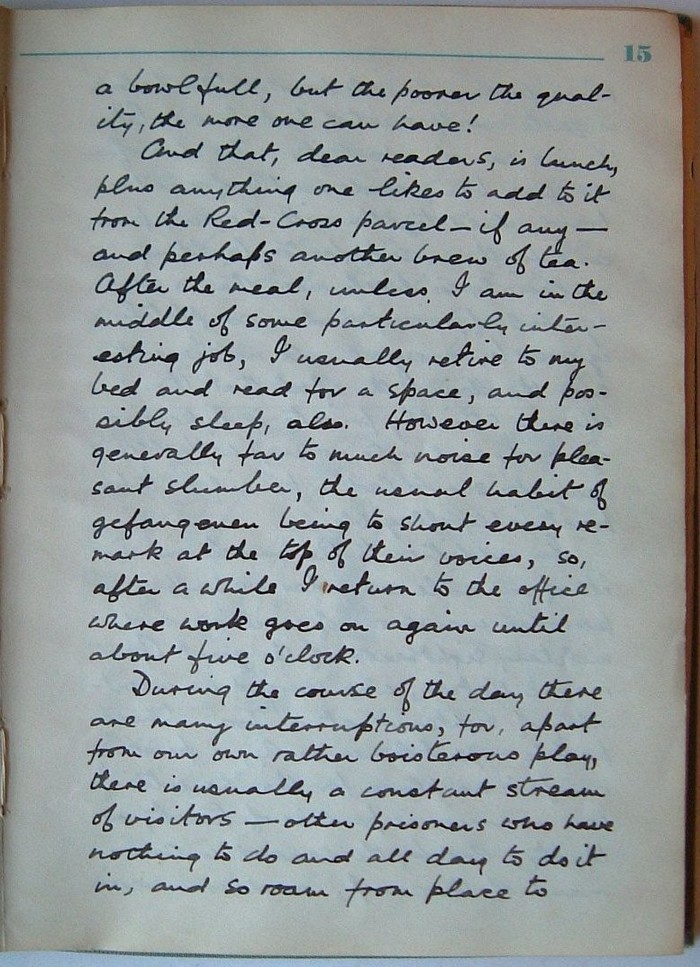 15
a bowl full, but the poorer the qual-
ity, the more one can have!
And that, dear readers, is lunch,
plus anything one likes to add to it
from the Red-Cross parcel — if any —
and perhaps another brew of tea.
After the meal, unless, I am in the
middle of some particularly inter-
esting job, I usually retire to my
bed and read for a space, and pos-
sibly sleep, also. However there is
generally far to much noise for plea-
sant slumber, the usual habit of
gefangenen being to shout every re-
mark at the top of their voices, so,
after a while I return to the office
where work goes on again until
about five o'clock.
During the course of the day there
are many interruptions, for, apart
from our own rather boisterous play,
there is usually a constant stream
of visitors — other prisoners who have
nothing to do and all day to do it
in, and so roam from place to